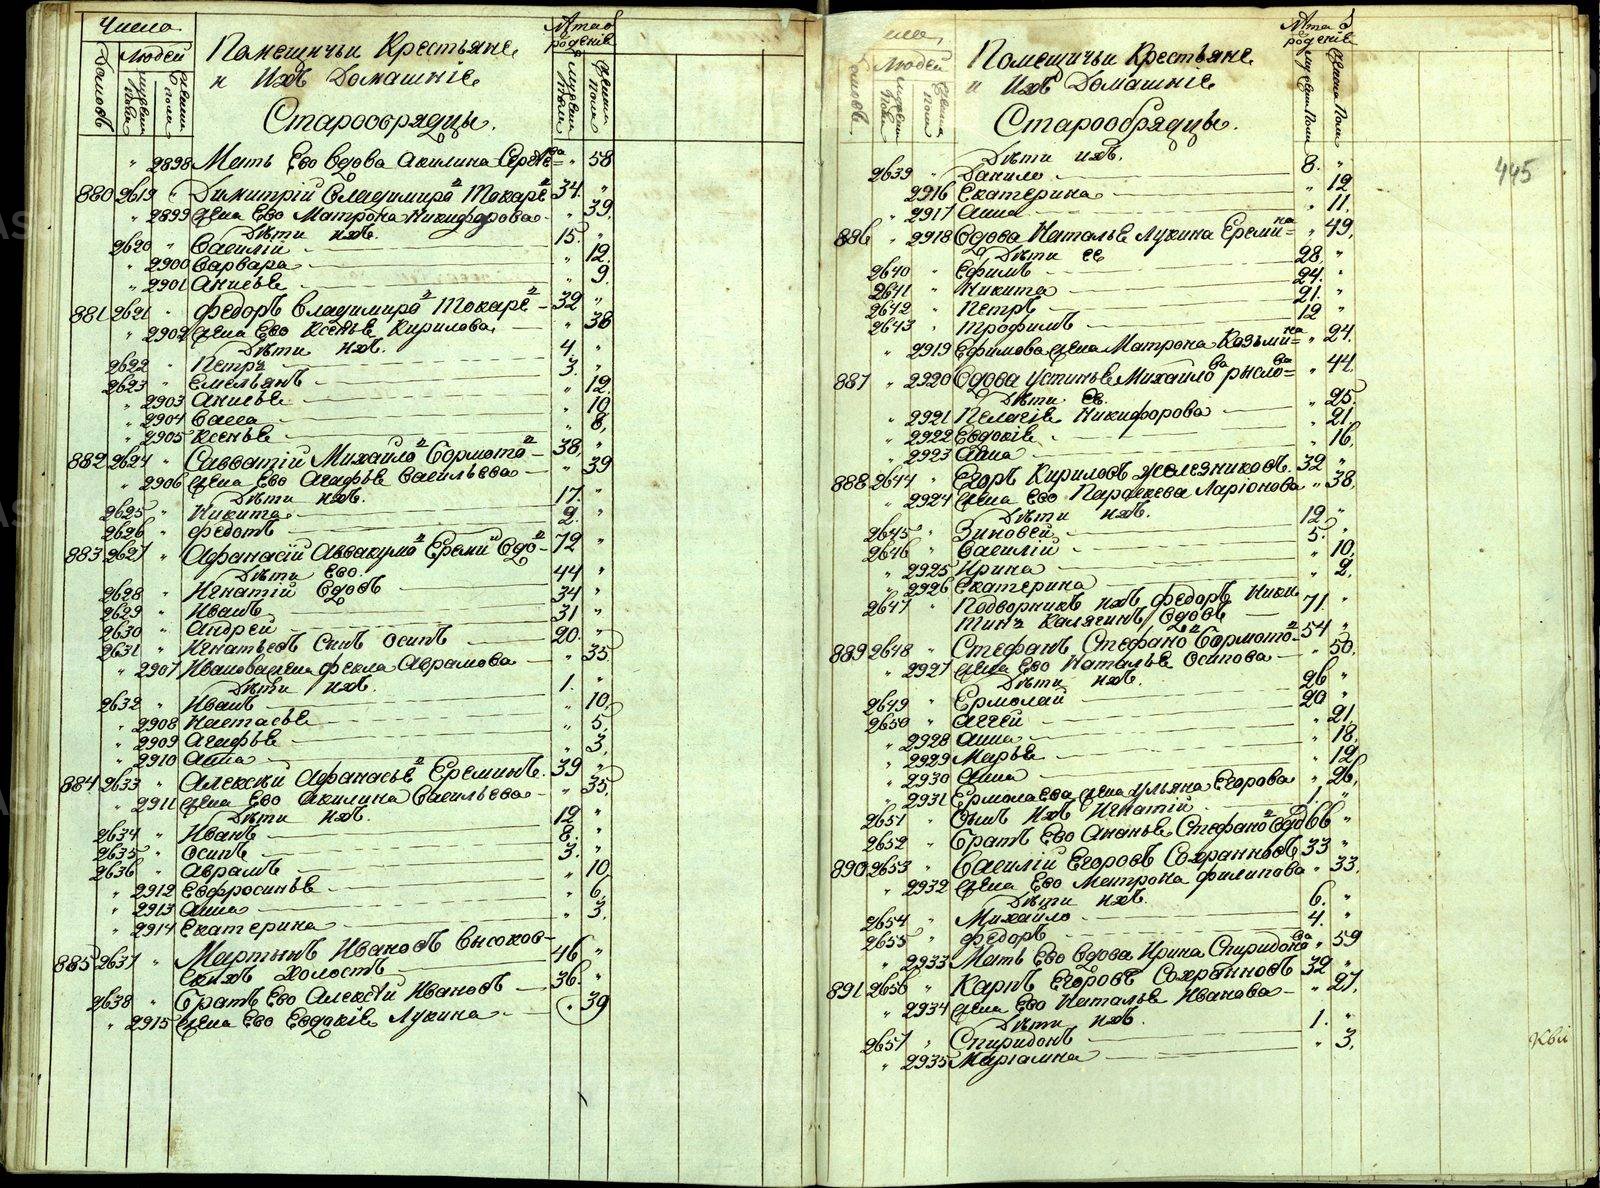 Числа
Домовъ
Людей
мужеска пола
женска пола
Помещичьи Крестьяне
и Ихъ Домашніе
Старообрядцы.
Лѣта отъ рожденія
мужеска пола
женска пола
" 2898 Мать Ево вдова Акилина Сергѣева " 58
880 2619 " Димитрій Владимировъ Токаревъ 34. "
" 2899 жена Ево Матрона Никифорова " 39.
Дѣти ихъ.
2620 " Василій 15. "
" 2900 Варвара " 12.
" 2901 Анисья " 9.
881 2621 " Федоръ Владимировъ Токаревъ 32 "
" 2902 жена Ево Ксенья Кирилова " 38
Дѣти ихъ.
2622 " Петръ 4. "
2623 " Емельянъ 3. "
" 2903 Анисья " 12.
" 2904 Васса " 10.
" 2905 Ксенья " 8.
882 2624 " Савватій Михайловъ Бормотовъ 38, "
" 2906 жена Ево Агафья Васильева " 39
Дѣти ихъ.
2625 " Никита 17. "
2626 " Федотъ 2. "
883 2627 " Афанасій Аввакумовъ Ереминъ вдовъ 72 "
Дѣти Ево.
2628 " Игнатій вдовъ 44 "
2629 " Иванъ 34 "
2630 " Андрей 31 "
2631 " Игнатьевъ Сынъ Осипъ 20. "
" 2907 Иванова жена Фекла Аврамова " 35
Дѣти ихъ.
2632 " Иванъ 1. "
" 2908 Настасья " 10.
" 2909 Агафья " 5.
" 2910 Анна " 3.
884 2633 " Алексѣй Афанасьевъ Ереминъ. 39 "
" 2911 жена Ево Акилина Васильева " 35.
Дѣти ихъ.
2634 " Иванъ 12 "
2635 " Осипъ 8. "
2636 " Аврамъ 3. "
" 2912 Евфросинья " 10.
" 2913 Анна " 6.
" 2914 Екатерина " 3.
885 2637 " Мартынъ Ивановъ Высоковскихъ Холостъ 46 "
2638 " Братъ Ево Алексѣй Ивановъ 36. "
" 2915 жена Ево Евдокія Лукина " 39
Домовъ.
Людей
мужеска пола
женска пола
Помещичьи Крестьяне
и Ихъ Домашніе
Старообрядцы.
Лѣта отъ рожденія
мужеска пола
женска пола
445
Дѣти ихъ.
2639 " Данило 8. "
" 2916 Екатерина " 12
" 2917 Анна " 11
886 " 2918 Вдова Наталья Лукина Еремина " 49.
Дѣти ее
2640 " Ефимъ 28. "
2641 " Никита 24. "
2642 " Петръ 21. "
2643 " Трофимъ 12 "
" 2919 Ефимова жена Матрона Козьмина " 24.
887 " 2920 Вдова Устинья Михайлова Рыслова " 44.
Дѣти ее.
" 2921 Пелагія Никифорова " 25.
" 2922 Евдокія " 21.
" 2923 Анна " 16.
888 2644 " Егоръ Кириловъ Железниковъ. 32 "
" 2924 жена Ево Параскева Ларіонова " 38.
Дѣти ихъ.
2645 " Зиновей 12 "
2646 " Василій 5. "
" 2925 Ирина " 10.
" 2926 Екатерина " 2.
2647 " Подворникъ ихъ Федоръ Никитинъ Калягинъ вдовъ 71. "
889 2648 " Стефанъ Стефановъ Бормотовъ 54 "
" 2927 жена Ево Наталья Осипова " 50.
Дѣти ихъ.
2649 " Ермолай 26 "
2650 " Аггей 20 "
" 2928 Анна " 21.
" 2929 Марья " 18.
" 2930 Анна " 12.
" 2931 Ермолаева жена Ульяна Егорова " 26.
2651 " Сынъ Ихъ Игнатій 1. "
2652 " Братъ Ево Ананья Стефановъ вдовъ 66 "
890 2653 " Василій Егоровъ Сохранновъ 33 "
" 2932 жена Ево Матрона Филипова " 33.
Дѣти ихъ.
2654 " Михайло 6. "
2655 " Федоръ 4. "
" 2933 Мать Ево вдова Ирина Спиридонова " 59
891 2656 " Карпъ Егоровъ Сохранновъ 32 "
" 2934 жена Ево Наталья Иванова " 27.
Дѣти ихъ.
2657 " Спиридонъ 1. "
" 2935 Маріамна " 3.